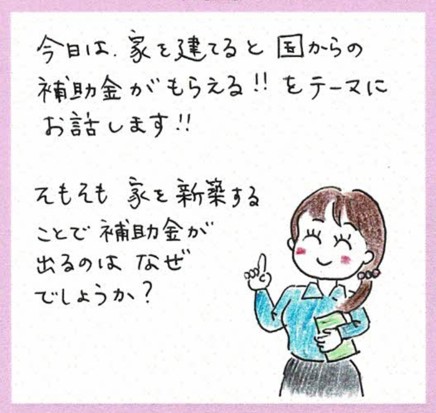 今日は、家を建てると国からの
補助金がもらえる!!をテーマに
お話します!!
そもそも 家を新築する
ことで補助金が
出るのは なぜ
でしょうか?